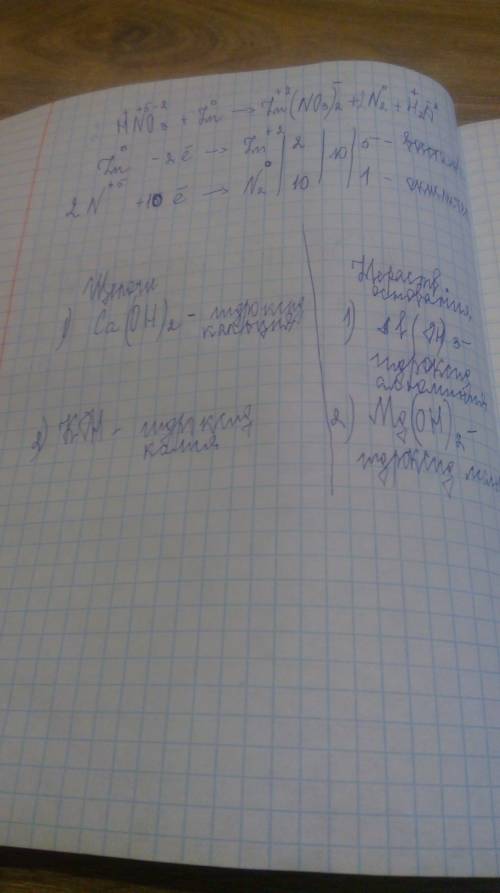 HNO₃ + Zn → Zn(NO₃)₂ + N₂ + H₂O
Zn⁰ - 2ē → Zn⁺² | 2 | 10 | 5 -
2N⁺⁵ + 10ē → N₂⁰ | 10 | | 1 -
Щелочи
1) Ca(OH)₂ - гидроксид
кальция
2) KOH - гидроксид
калия
Нераств.
основания
1) Al(OH)₃ -
гидроксид
алюминия
2) Mg(OH)₂ -
гидроксид